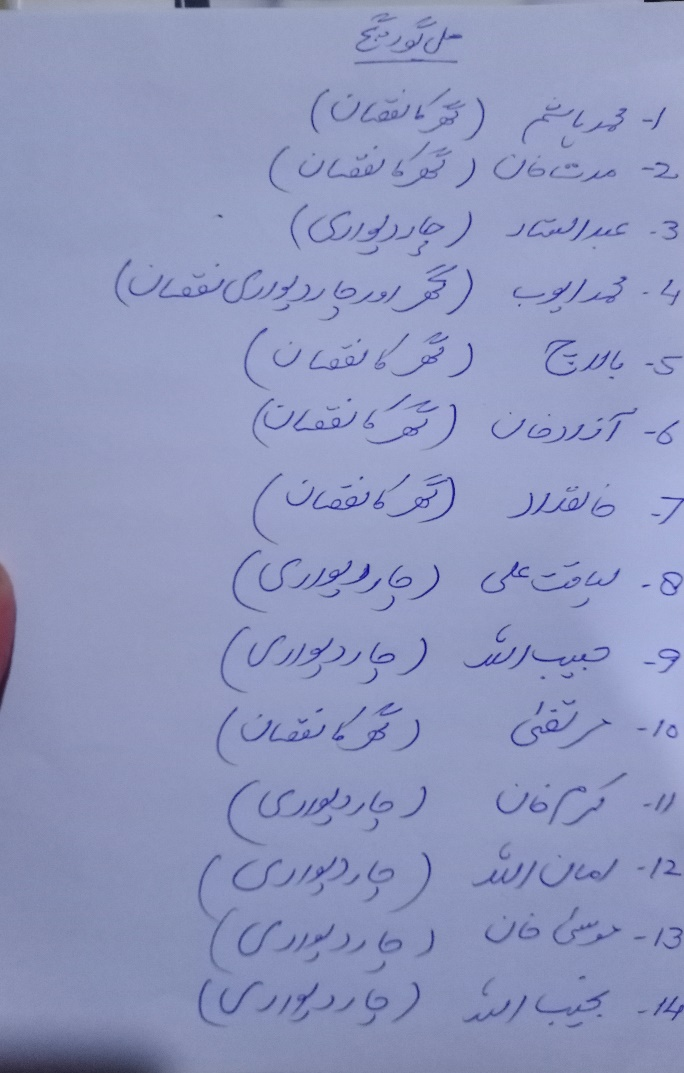 مل گورگیج
1- محمد ہاشم (گھر کا نقصان)
2- مدت خان (گھر کا نقصان)
3- عبدالستار (چاردیواری)
4- محمد ایوب (گھر اور چاردیواری نقصان)
5- بالاچ (گھر کا نقصان)
6- آزاد خان (گھر کا نقصان)
7- خالقداد (گھر کا نقصان)
8- لیاقت علی (چاردیواری)
9- حبیب اللہ (چاردیواری)
10- مرتضیٰ (گھر کا نقصان)
11- کرم خان (چاردیواری)
12- امان اللہ (چاردیواری)
13- موسیٰ خان (چاردیواری)
14- نجیب اللہ (چاردیواری)